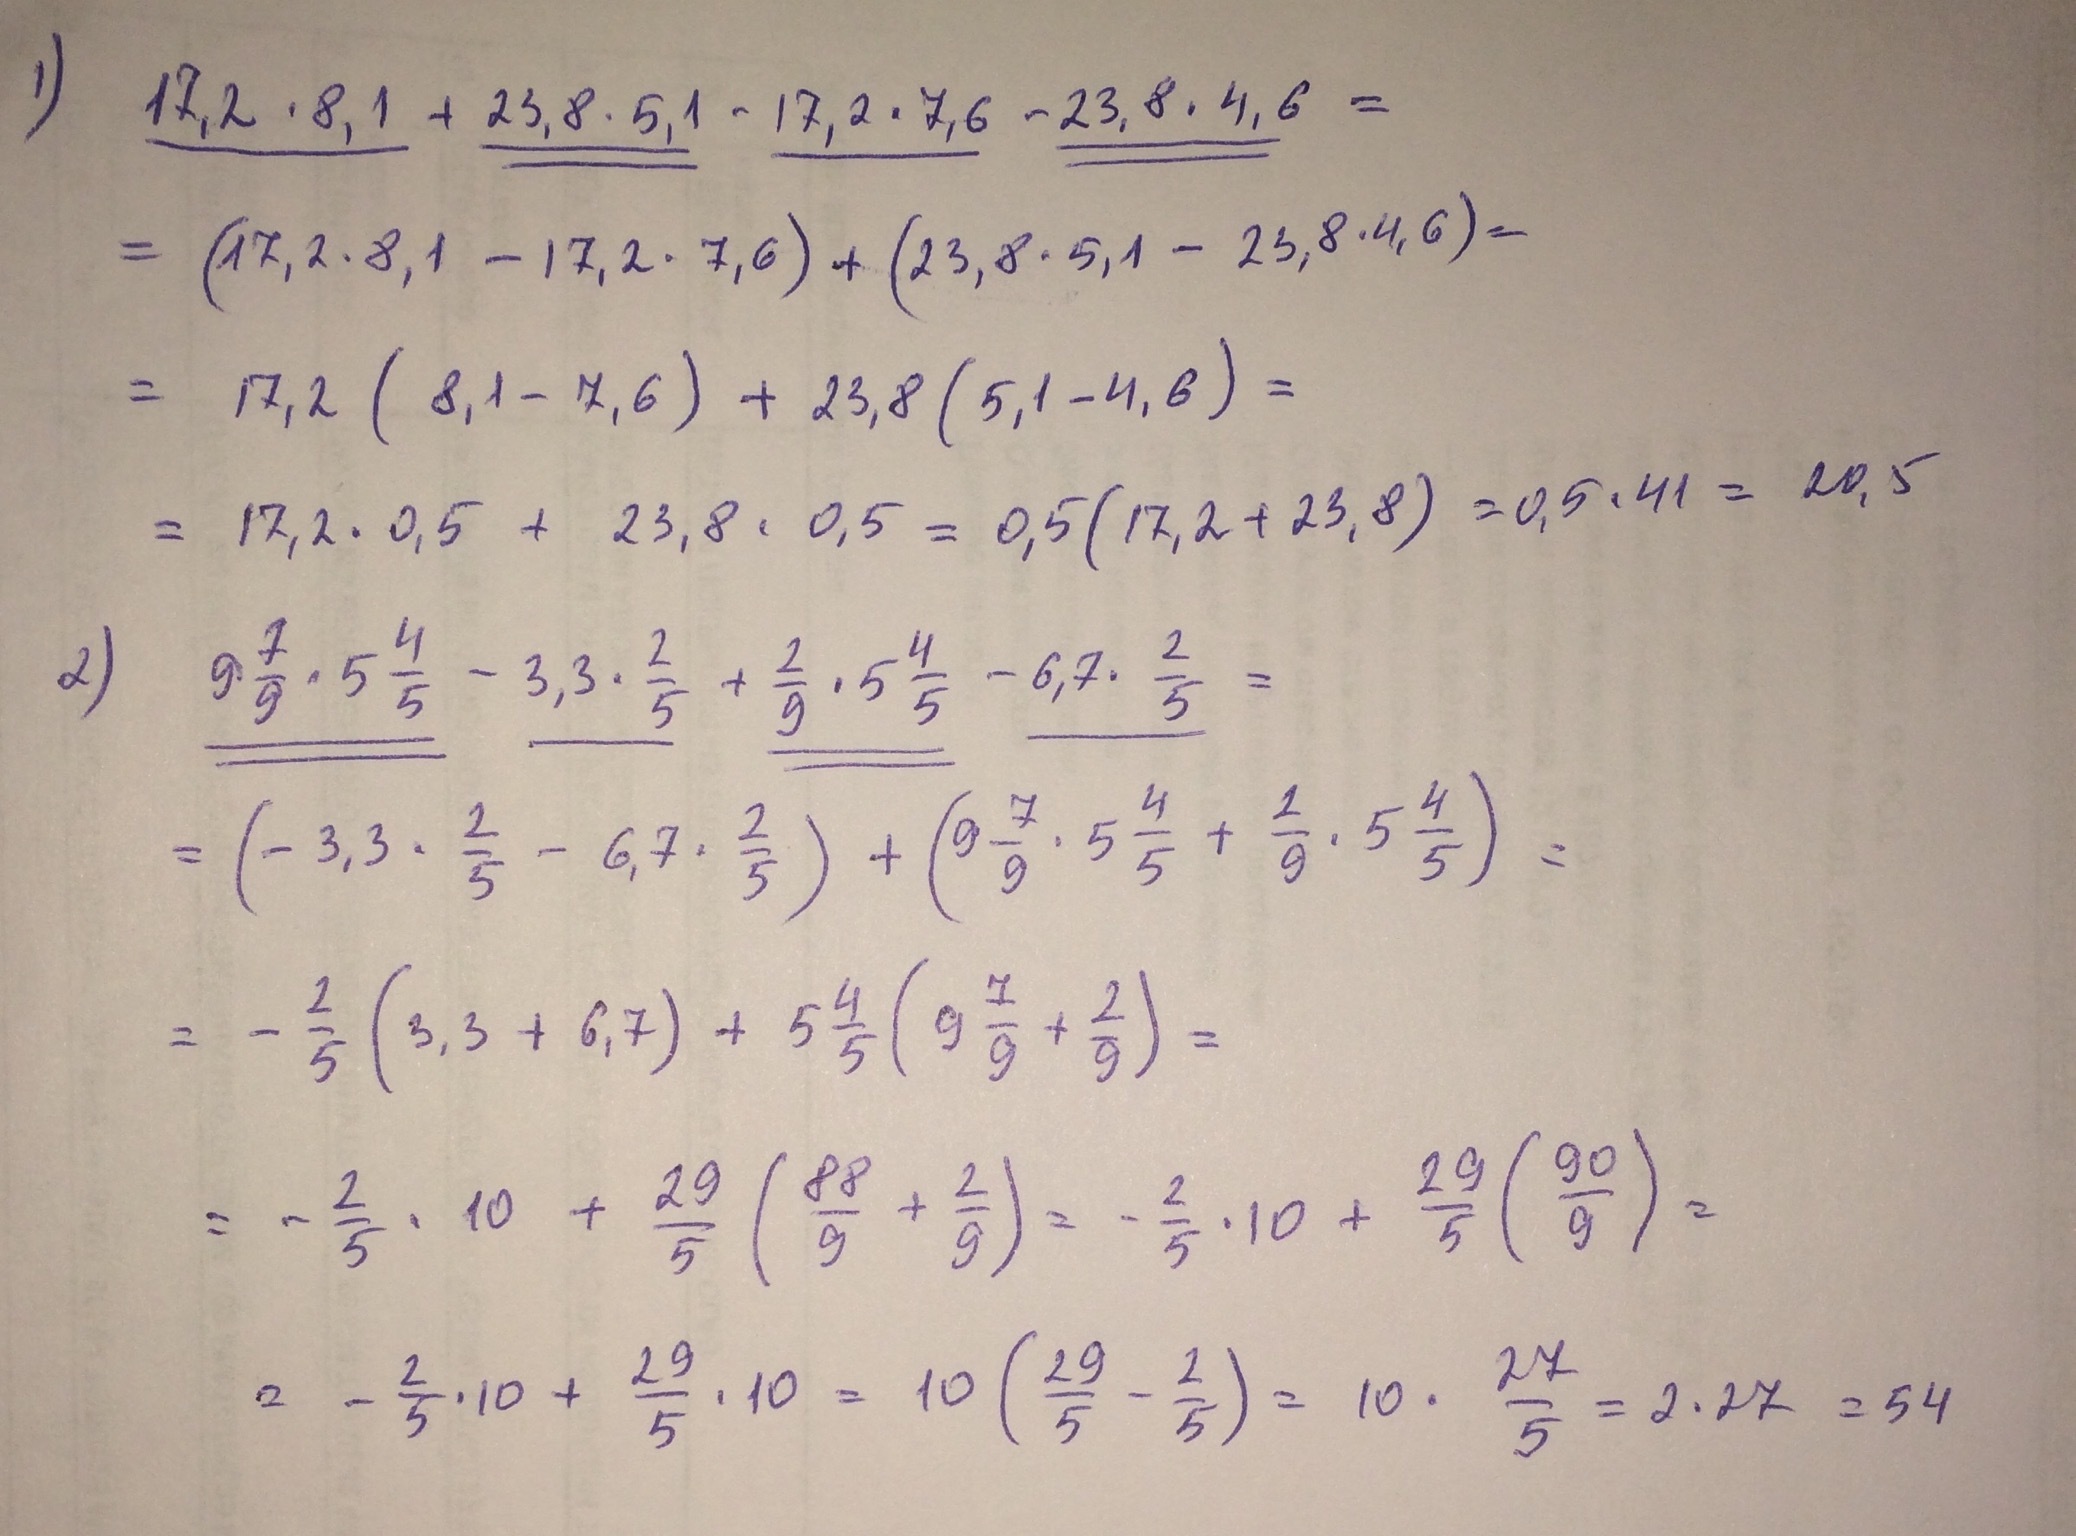 1) 17,2 · 8,1 + 23,8 · 5,1 - 17,2 · 7,6 - 23,8 · 4,6 =
= (17,2 · 8,1 - 17,2 · 7,6) + (23,8 · 5,1 - 23,8 · 4,6) =
= 17,2 ( 8,1 - 7,6) + 23,8 (5,1 - 4,6) =
= 17,2 · 0,5 + 23,8 · 0,5 = 0,5 (17,2 + 23,8) = 0,5 · 41 = 20,5
2) 9 7/9 · 5 4/5 - 3,3 · 2/5 + 2/9 · 5 4/5 - 6,7 · 2/5 =
= (- 3,3 · 2/5 - 6,7 · 2/5) + (9 7/9 · 5 4/5 + 2/9 · 5 4/5) =
= - 2/5 (3,3 + 6,7) + 5 4/5 (9 7/9 + 2/9) =
= - 2/5 · 10 + 29/5 (88/9 + 2/9) = - 2/5 · 10 + 29/5 (90/9) =
= - 2/5 · 10 + 29/5 · 10 = 10 (29/5 - 2/5) = 10 · 27/5 = 2 · 27 = 54